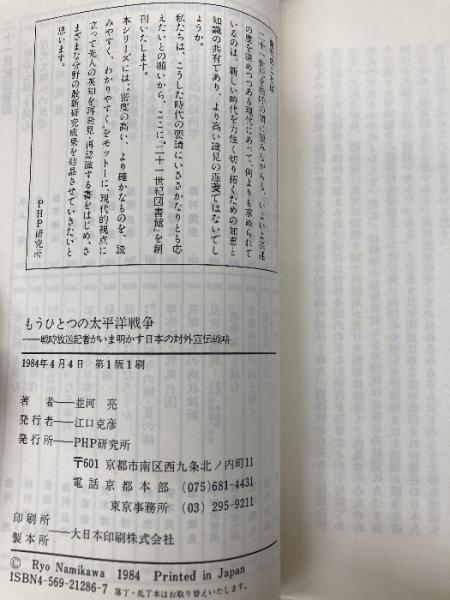 発刊のことば
二十一世紀を指呼の間に望みながらも、いよいよ混迷
の度を深めつつある現代にあって、何よりも求められて
いるのは、新しい時代を力強く切り拓くための知恵と
知識の共有であり、より高い識見の涵養ではないでし
ょうか。
私たちは、こうした時代の要請にいささかなりとも応
えたいとの願いから、ここに“二十一世紀図書館”を創
刊いたします。
本シリーズには、“密度の高い、より確かなものを、読
みやすく、わかりやすく”をモットーに、現代的視点に
立って先人の英知を再発見、再認識する書をはじめ、さ
まざまな分野の最新研究成果を結晶させていきたいと
思います。
PHP研究所
もうひとつの太平洋戦争
――戦時放送記者がいま明かす日本の対外宣伝戦略
1984年4月4日 第1版1刷
著者――並河 亮
発行者――江口克彦
発行所――PHP研究所
〒601 京都市南区西九条北ノ内町11
電話 京都本部 (075)681-4431
東京事務所 (03)295-9211
印刷所
製本所――大日本印刷株式会社
© Ryo Namikawa 1984 Printed in Japan
ISBN4-569-21286-7 落丁・乱丁本はお取り替えいたします。